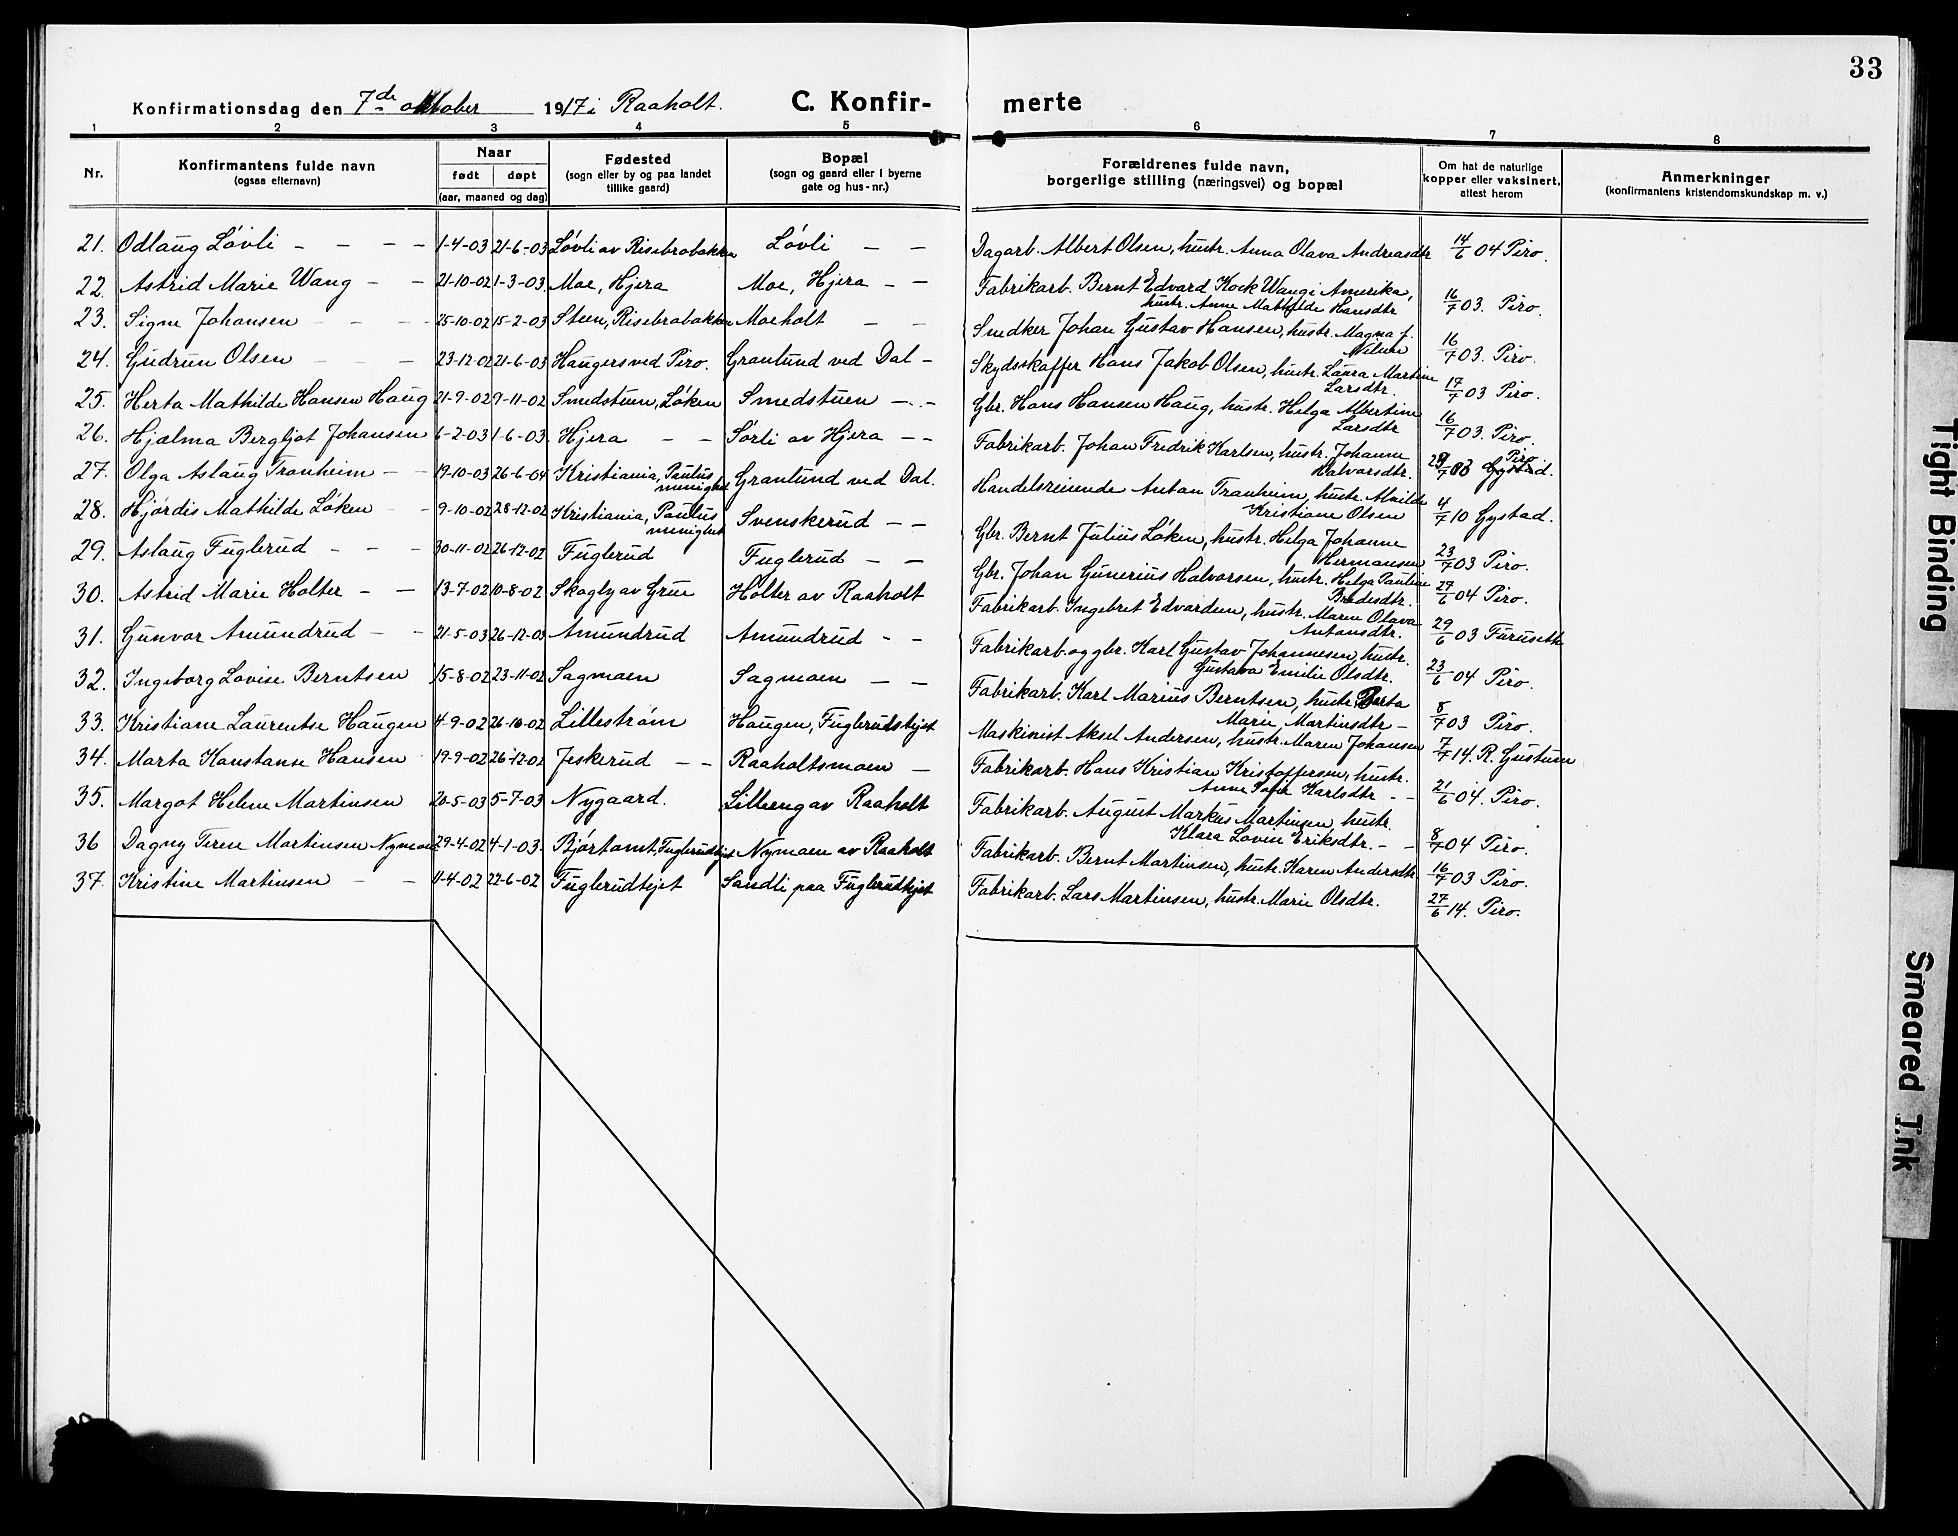 33
Konfirmationsdag den 7de oktober 1917 i Raaholt. C. Konfirmerte
1 2 3 4 5 6 7 8
Nr. Konfirmantens fulde navn (ogsaa efternavn) Naar født døpt (aar, maaned og dag) Fødested (sogn eller by og paa landet tillike gaard) Bopæl (sogn og gaard eller i byerne gate og hus-nr.) Forældrenes fulde navn, borgerlige stilling (næringsvei) og bopæl Om hat de naturlige kopper eller vaksinert, attest herom Anmerkninger (konfirmantens kristendomskundskap m. v.)
21. Odlaug Løvli - - - - 1-4-03 21-6-03 Løvli av Risebrobakken Løvli - - Dagarb. Albert Olsen, hustr. Anna Olava Andreasdtr 14/6 04 Piro.
22. Astrid Marie Wang - - 21-10-02 1-3-03. Moe, Hjera Moe, Hjera - - Fabrikarb. Bernt Edvard Kock Wang i Amerika, hustr. Anne Mathilde Hansdtr 16/7 03. Piro.
23. Signe Johansen - - - 25-10-02 15-2-03 Steen, Risebrobakken Moeholt - - Snedker Johan Gustav Hansen, hustr. Magna f. Nilsen 16/7 03. Piro.
24. Gudrun Olsen - - - 23-12-02 21-6-03 Haugers ved Piro. Granlund ved Dal - Skydsskaffer Hans Jakob Olsen, hustr. Laura Martine Larsdtr. 17/7 03 Piro.
25. Herta Mathilde Hansen Haug 21-9-02 9-11-02 Smedstuen, Løken Smedstuen - - Gbr. Hans Hansen Haug, hustr. Helga Albertine Larsdtr 16/7 03. Piro.
26. Hjælma Bergljot Johansen 6-2-03 1-6-03. Hjera - - Sørli av Hjera - - Fabrikarb. Johan Fredrik Karlsen, hustr. Johanne Halvorsdtr. Piro
27. Olga Aslaug Tranheim - - 19-10-03 26-6-04 Kristiania, Paulus menighet Granlund ved Dal. Handelsreisende Anton Tranheim, hustr. Alvilde Kristiane Olsen 4/7 10 Gystad.
28. Hjørdis Mathilde Løken - - 9-10-02 28-12-02 Kristiania, Paulus menighet Svenskerud - - Gbr. Bernt Julius Løken, hustr. Helga Johanne Hermansen 23/7 03 Piro.
29. Aslaug Fuglerud - - - 30-11-02 26-12-02 Fuglerud Fuglerud - - Gbr. Johan Gunerius Halvorsen, hustr. Helga Pauline Bredesdtr. 27/6 04 Piro.
30. Astrid Marie Holter - - 13-7-02 10-8-02 Skogly av Grue Holter av Raaholt Fabrikarb. Ingebret Edvardsen, hustr. Maren Olava Antonsdtr. 29/6 03 Furuseth
31. Gunvor Amundrud - - 21-5-03 Amundrud Amundrud - - Fabrikarb. og gbr. Karl Gustav Johannesen, hustr. Gustava Emilie Olsdtr. 23/6 04 Piro.
32. Ingeborg Lovise Berntsen 15-8-02 23-11-02 Sagmoen Sagmoen - - Fabrikarb. Karl Marius Berntsen, hustr. Berta Marie Martinsdtr - 8/7 03 Piro.
33. Kristiane Laurentse Haugen 4-9-02 26-10-02 Lillestrøm Haugen, Fuglerudsejet Maskinist Aksel Andersen, hustr. Maren Johansen 7/7 14. R. Gustum
34. Marta Konstanse Hansen 19-9-02 26-12-02 Jeskerud - - Raaholtsmoen - Fabrikarb. Hans Kristian Kristoffersen, hustr. Anne Sofie Karlsdtr - - 21/6 04. Piro.
35. Margot Helene Martinsen 20-5-03 5-7-03 Nygaard. Lilleeng av Raaholt Fabrikarb. August Markus Martinsen, hustr. Klara Lovise Eriksdtr. - - 8/7 04 Piro.
36 Dagny Martinsen Nymoen 29-4-02 4-1-03. Nymoen av Raaholt Fabrikarb. Bernt Martinsen, hustr. Karen Andersdtr. 16/7 03 Piro.
37. Kristine Martinsen - - 11-4-02 22-6-02 Fuglerudejet Sandli paa Fuglerudejet Fabrikarb. Lars Martinsen, hustr. Marie Olsdtr. 27/6 14. Piro.
Tight Binding
Smeared Ink